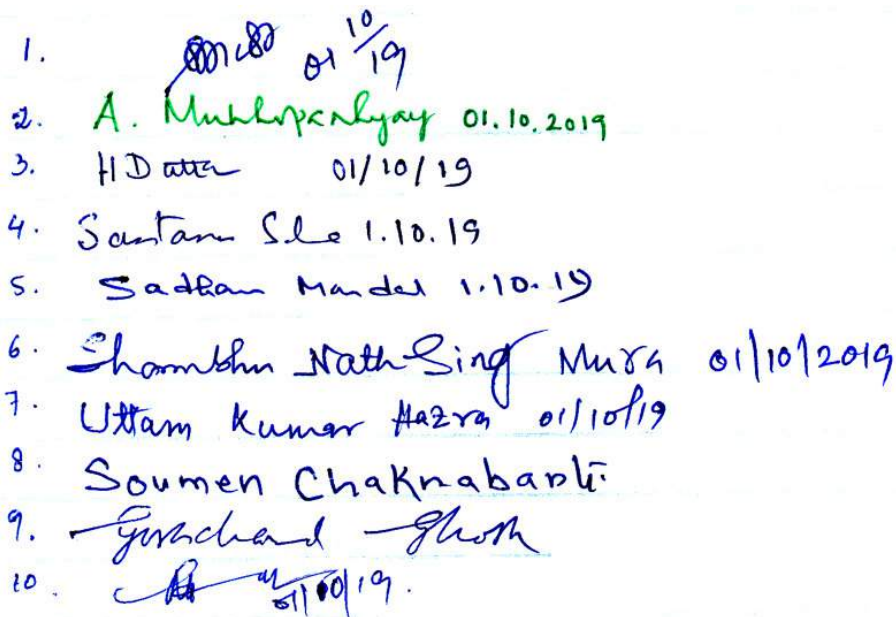 1. 01/10/19
2. A. Mukhopadhyay 01.10.2019
3. H Datta 01/10/19
4. Santanu 1.10.19
5. Sadhan Mandal 1.10.19
6. Shambhu Nath Sing Mura 01/10/2019
7. Uttam Kumar Hazra 01/10/19
8. Soumen Chakrabarti
9. Gourchand Ghosh
10. 01/10/19.